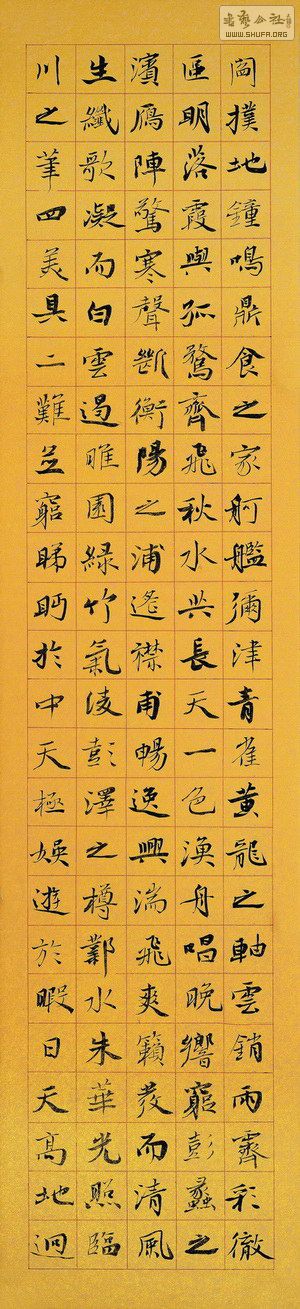 书艺公社
WWW.SHUFA.ORG
閻撲地鐘鳴鼎食之家舸艦彌津青雀黃龍之軸雲銷雨霽彩徹
區明落霞與孤鶩齊飛秋水共長天一色漁舟唱晚響窮彭蠡之
濱鴈陣驚寒聲斷衡陽之浦遙襟甫暢逸興湍飛爽籟發而清風
生纖歌凝而白雲遏睢園綠竹氣凌彭澤之樽鄴水朱華光照臨
川之筆四美具二難並窮睇眄於中天極娛遊於暇日天高地迥